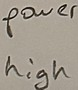 power
high